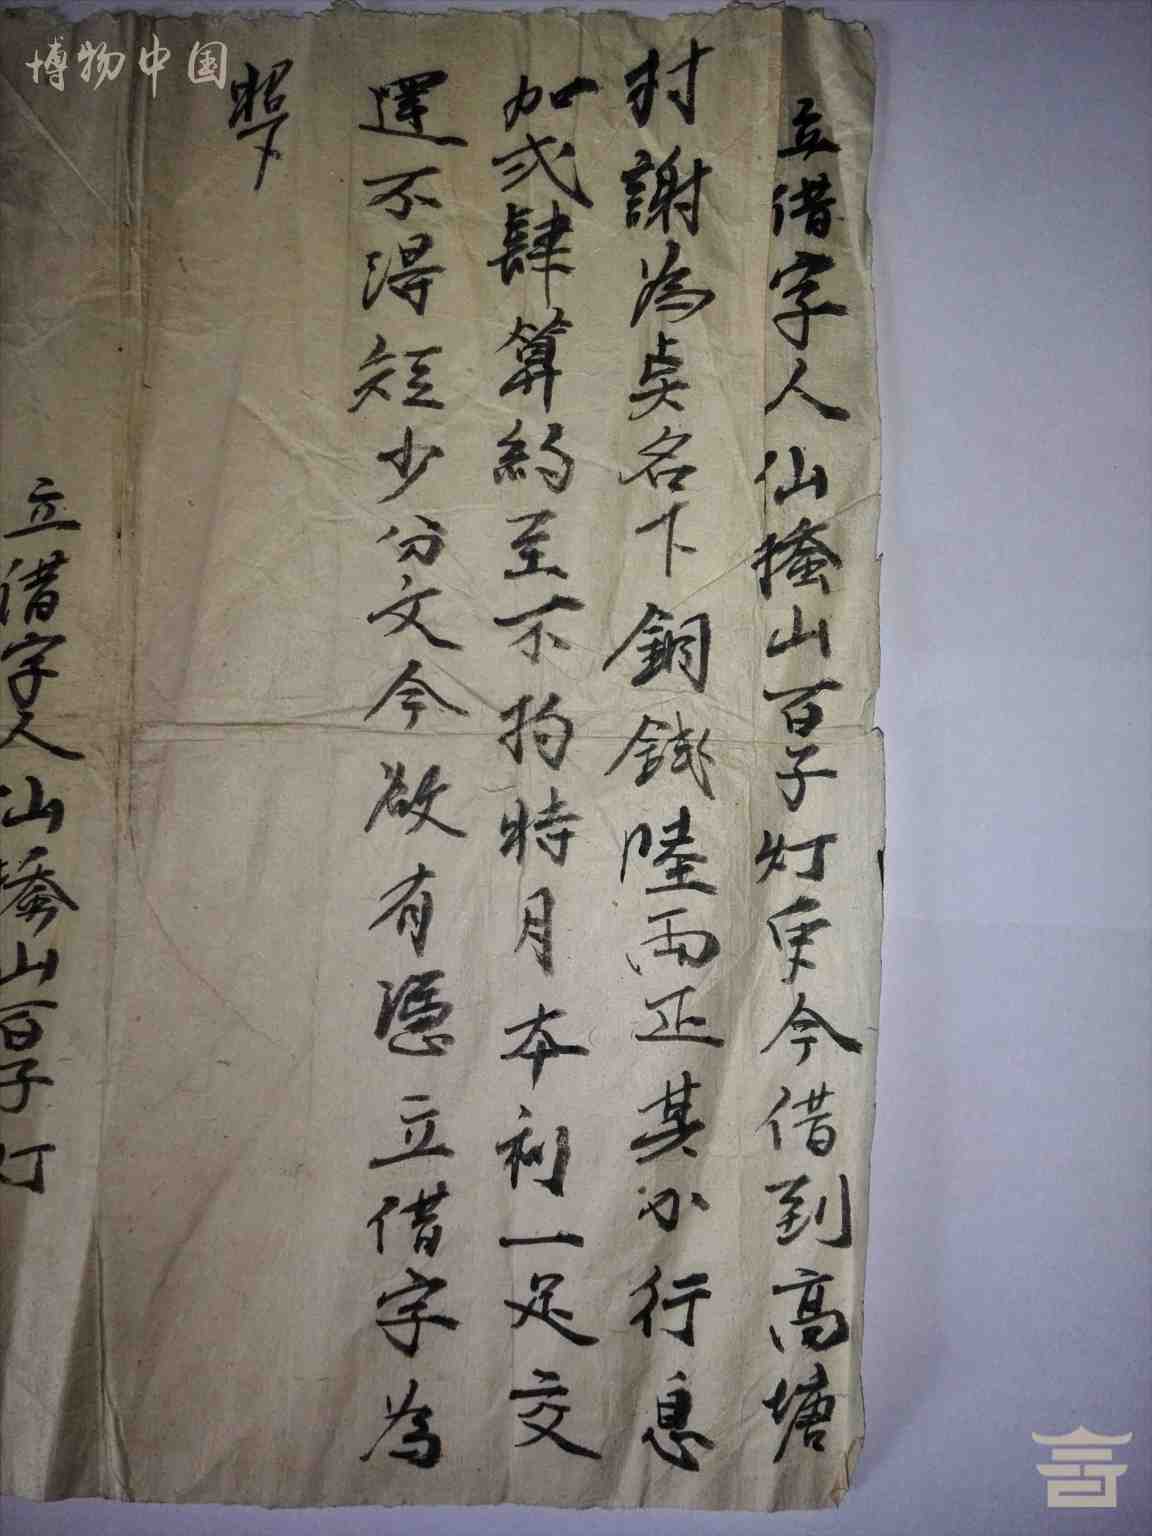 立借字人仙搔山百子灯更今借到高塘
村謝為奌名下銅銭陸両正其小行息
加弍肆算約至不拘時月本利一足交
還不得短少分文今欲有憑立借字為
照
立借字人山搔山百子灯
博物中国